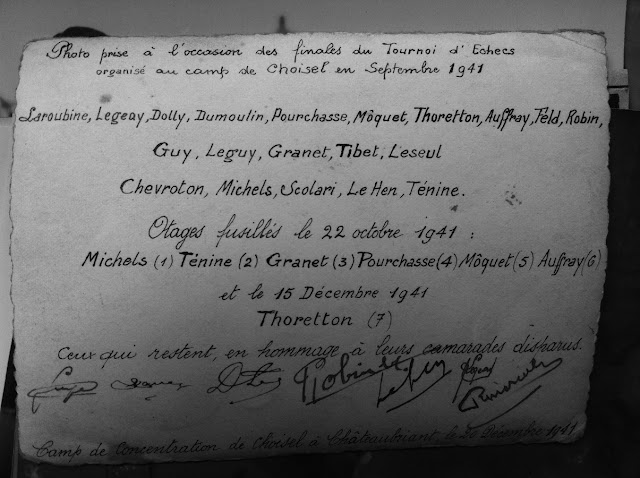 Photo prise à l'occasion des finales du Tournoi d'Echecs
organisé au camp de Choisel en Septembre 1941
Laroubine, Legeay, Dolly, Dumoulin, Pourchasse, Môquet, Thoretton, Auffray, Feld, Robin,
Guy, Leguy, Granet, Tibet, Leseul
Chevroton, Michels, Scolari, Le Hen, Ténine.
Otages fusillés le 22 octobre 1941 :
Michels (1) Ténine (2) Granet (3) Pourchasse (4) Môquet (5) Auffray (6)
et le 15 Décembre 1941
Thoretton (7)
Ceux qui restent, en hommage à leurs camarades disparus.
Camp de Concentration de Choisel à Châteaubriant, le Décembre 1941